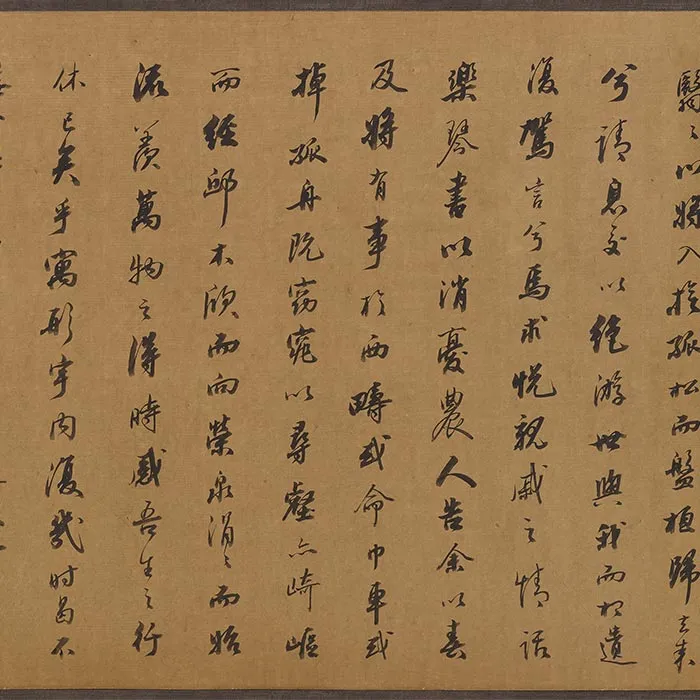 翳〻以將入撫孤松而盤桓歸去来
兮請息交以絕游世與我而相遺
復駕言兮焉求悅親戚之情話
樂琴書以消憂農人告余以春
及將有事於西疇或命巾車或
掉孤舟既窈窕以尋壑亦崎嶇
而經邱木欣而向榮泉涓〻而始
流羨萬物之得時感吾生之行
休已矣乎寓形宇内復幾時曷不